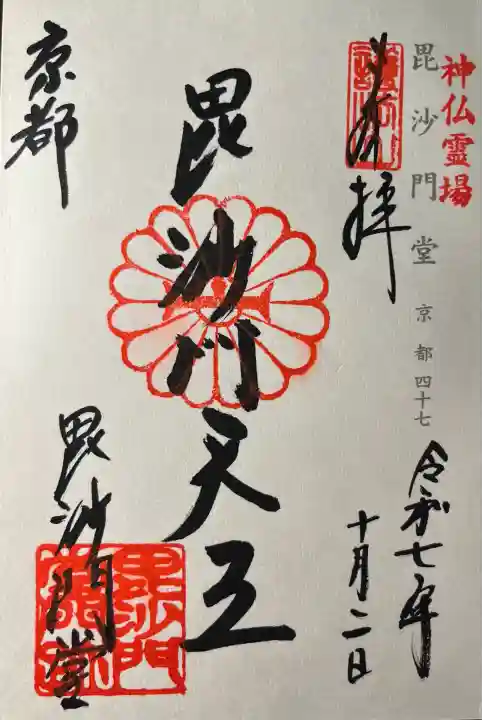 神仏霊場
毘沙門堂 京都四十七
奉拝
令和七年
十月二日
毘沙門天王
京都
毘沙門堂